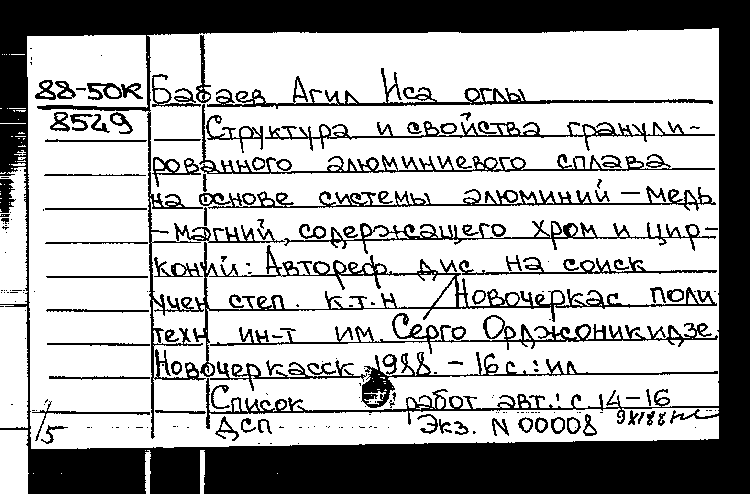 88-50К Бабаев, Агил Иса оглы
8549 Структура и свойства гранули-
рованного алюминиевого сплава
на основе системы алюминий – медь
– магний, содержащего хром и цир-
коний: Автореф. дис. на соиск
учен степ. к.т.н / Новочеркас поли
техн ин-т им. Серго Орджоникидзе.
Новочеркасск, 1988. – 16 с. : ил
Список работ авт.: с. 14–16
1/5 ДСП Экз. N 00008